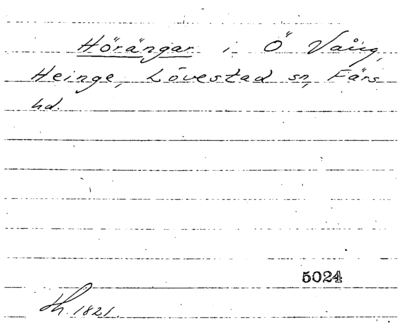 Hörängar i Ö Vång,
Heinge, Lövestad sn, Färs
hd.
5024
Lh. 1821.